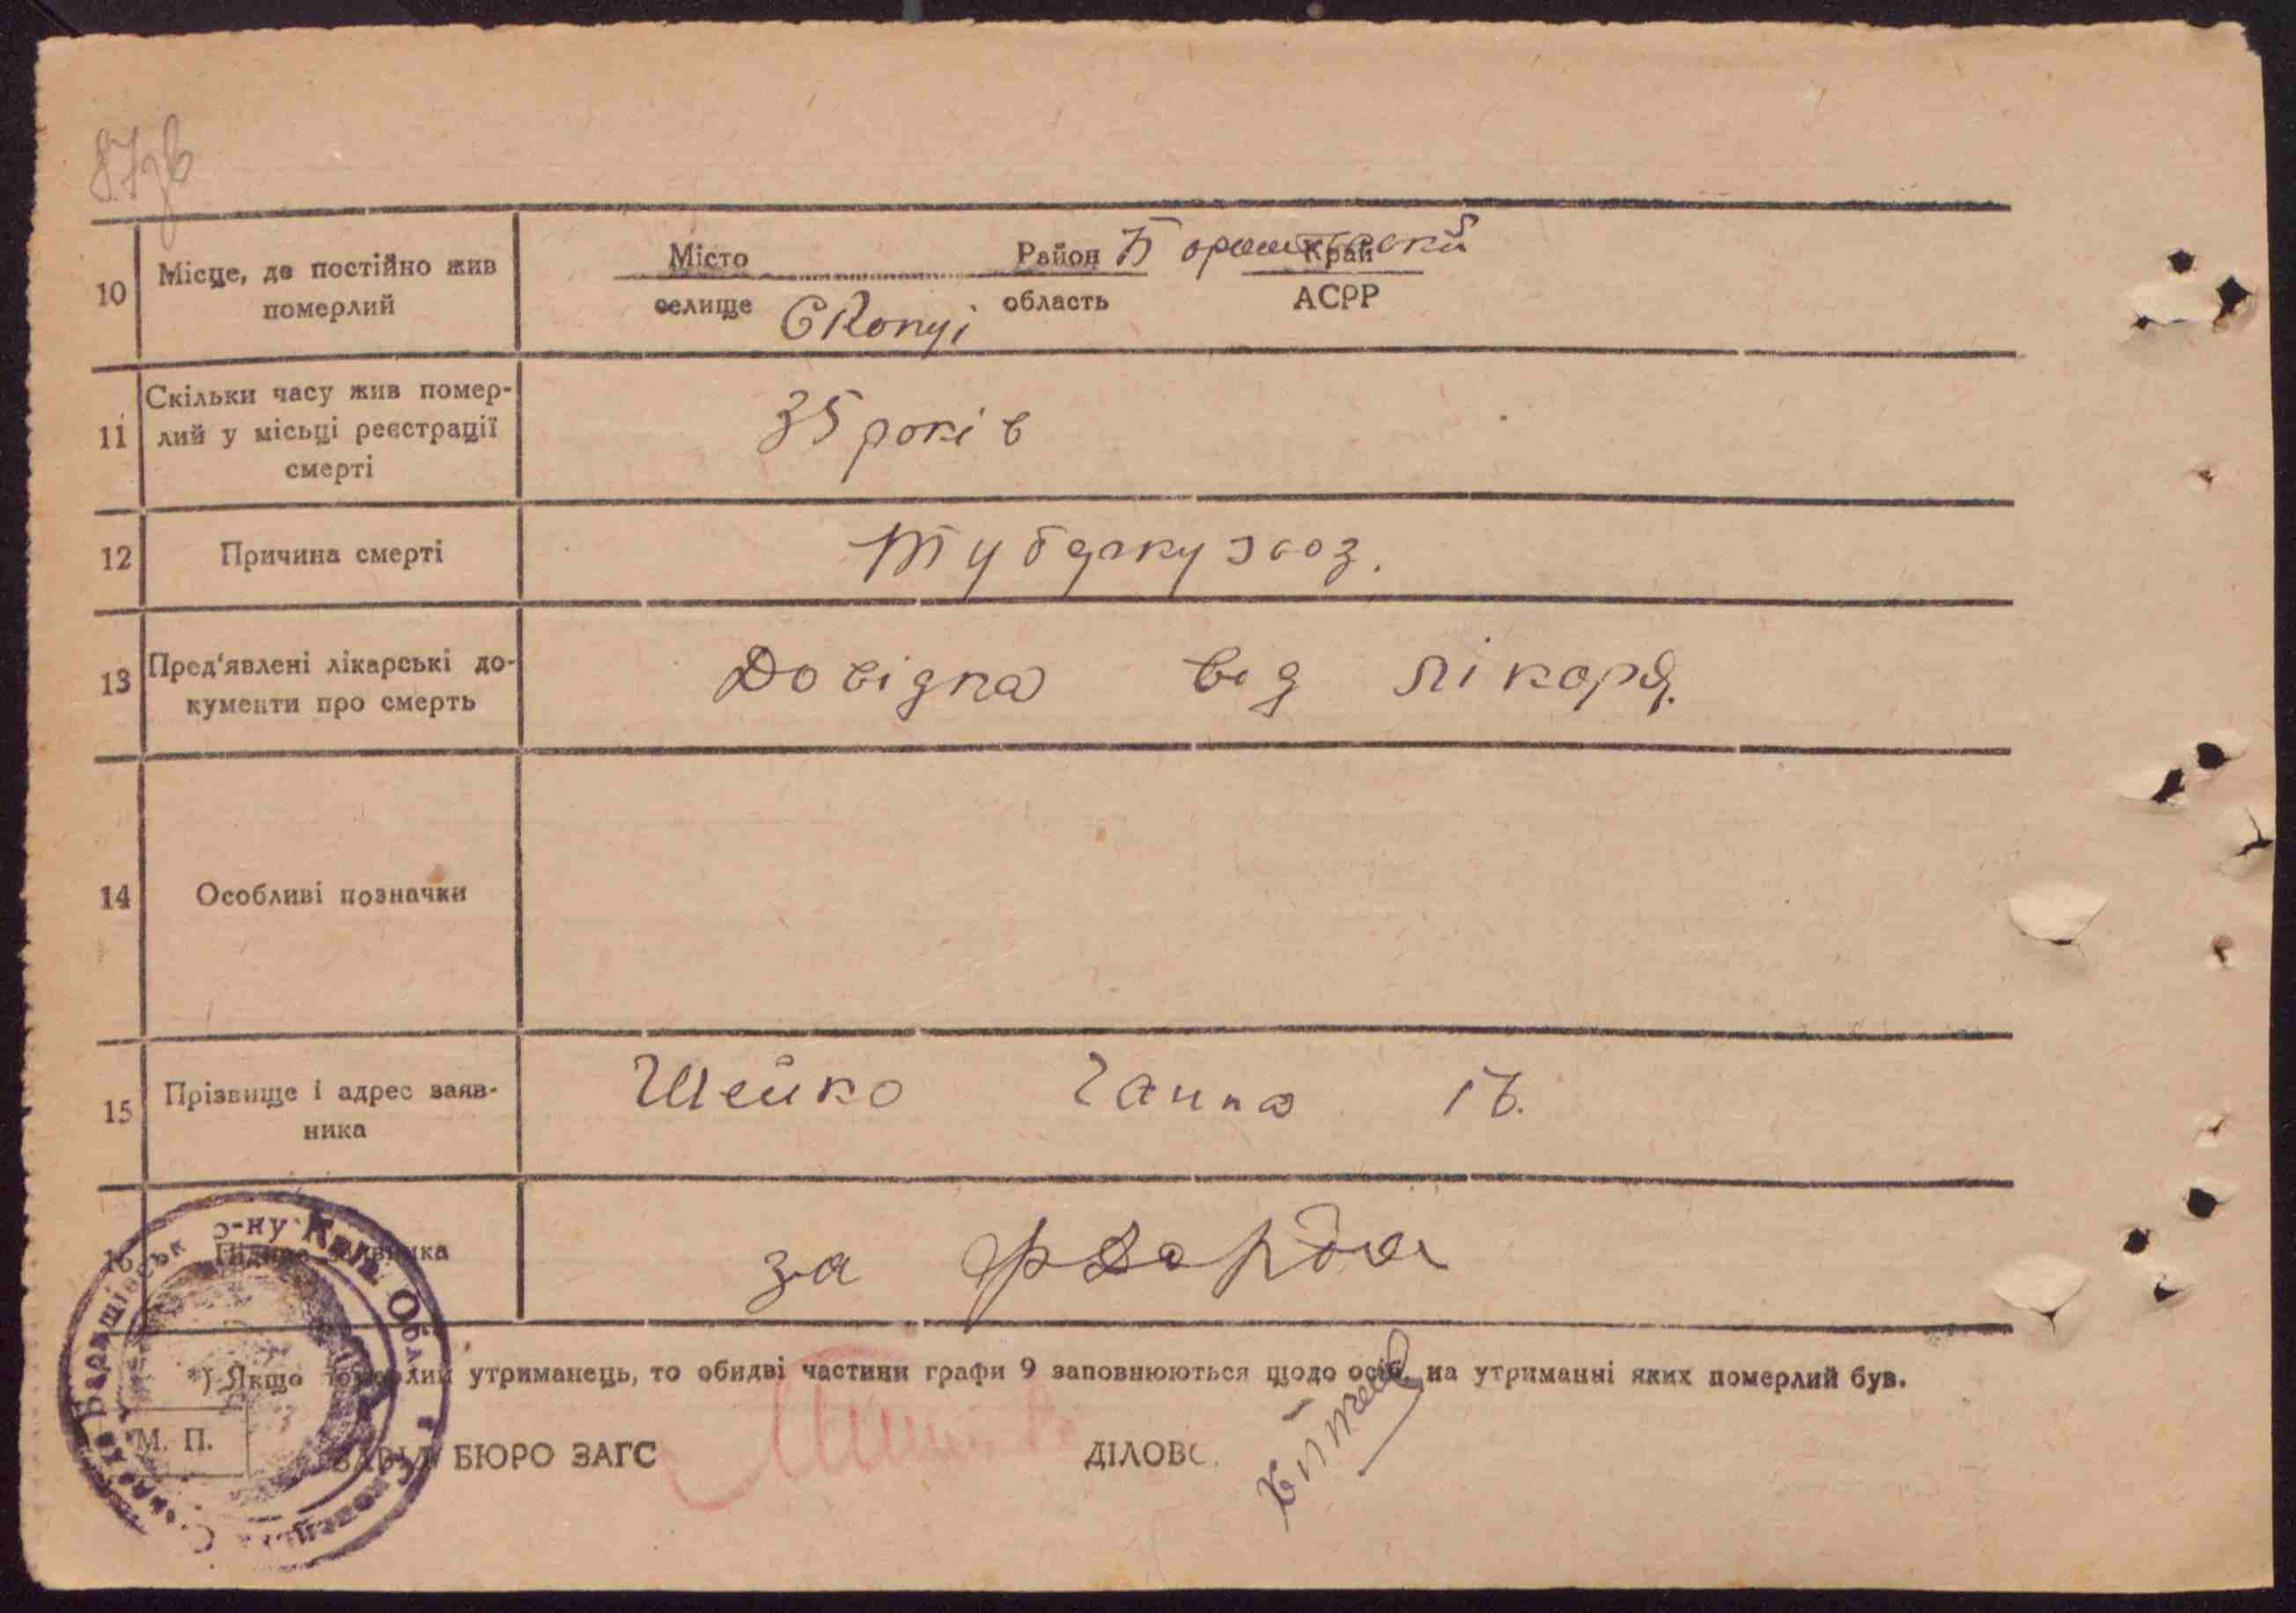 87зв
10 Місце, де постійно жив померлий
Місто Район Баришівський Край
селище Скопці область АСРР
11 Скільки часу жив помер-
лий у місьці реєстрації
смерті
35 років
12 Причина смерті
Туберкульоз.
13 Пред'явлені лікарські до-
кументи про смерть
Довідка від лікаря.
14 Особливі позначки
15 Прізвище і адрес заяв-
ника
Шейко Ганна Ів.
16 Підпис заявника
за
*) Якщо померлий утриманець, то обидві частини графи 9 заповнюються щодо осіб, на утриманні яких померлий був.
М. П.
ЗАВІД. БЮРО ЗАГС ДІЛОВ
р-ну Київ Обл